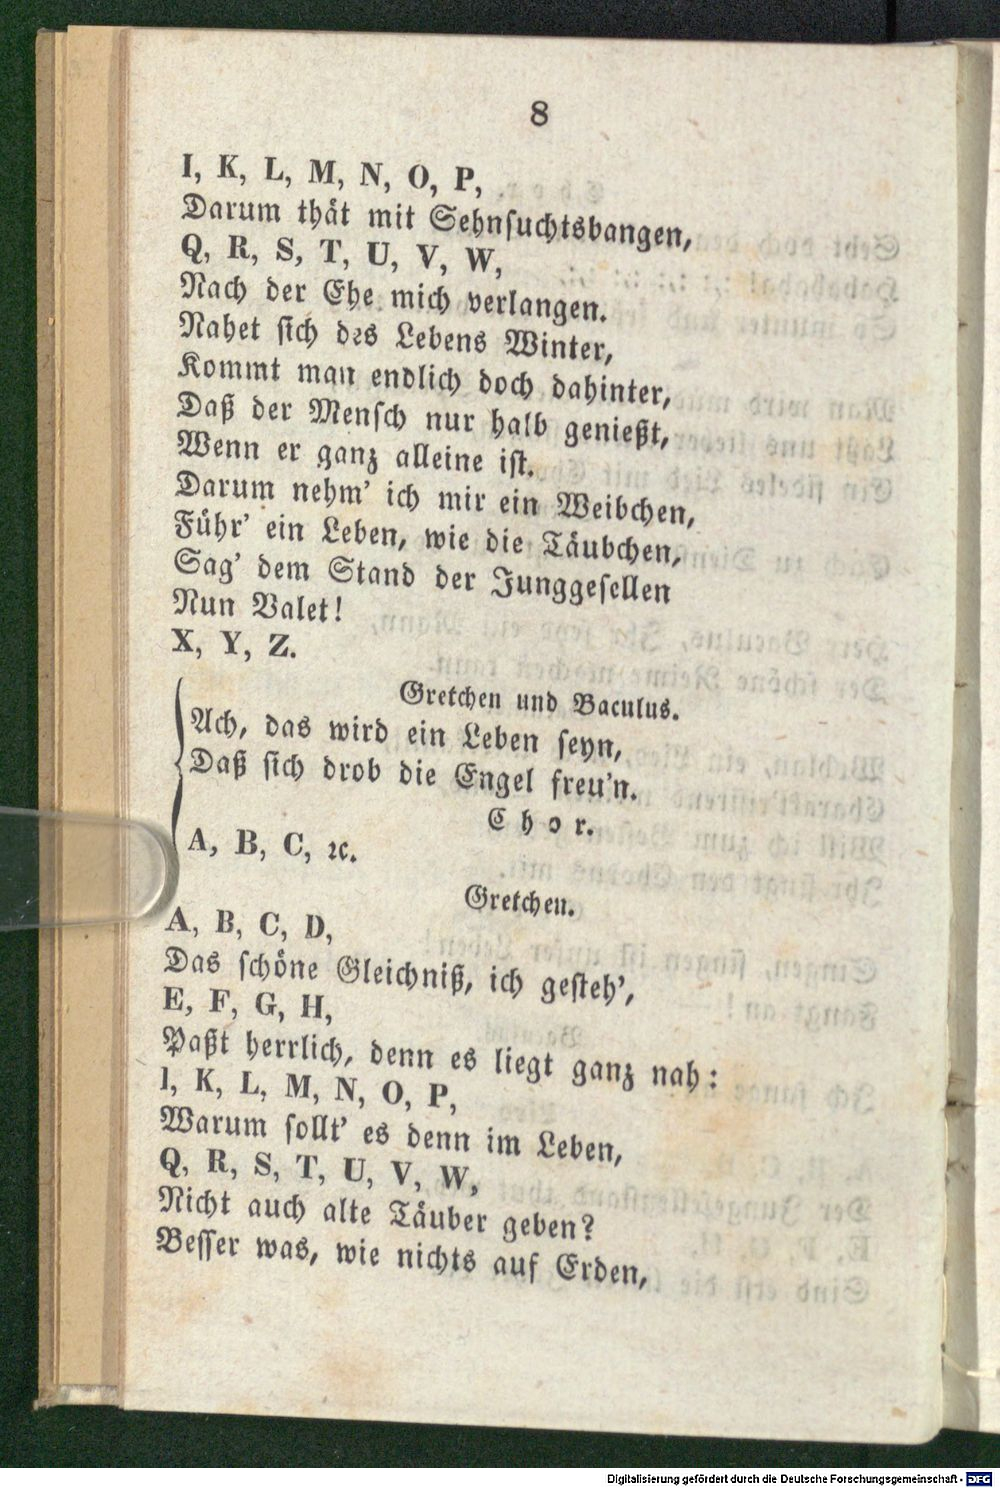 8
I, K, L, M, N, O, P,
Darum thät mit Sehnsuchtsbangen,
Q, R, S, T, U, V, W,
Nach der Ehe mich verlangen.
Nahet sich des Lebens Winter,
Kommt man endlich doch dahinter,
Daß der Mensch nur halb genießt,
Wenn er ganz alleine ist.
Darum nehm' ich mir ein Weibchen,
Führ' ein Leben, wie die Täubchen,
Sag' dem Stand der Junggesellen
Nun Valet!
X, Y, Z.
Gretchen und Baculus.
Ach, das wird ein Leben seyn,
Daß sich drob die Engel freu'n.
Chor.
A, B, C, ꝛc.
Gretchen.
A, B, C, D,
Das schöne Gleichniß, ich gesteh',
E, F, G, H,
Paßt herrlich, denn es liegt ganz nah:
I, K, L, M, N, O, P,
Warum sollt' es denn im Leben,
Q, R, S, T, U, V, W,
Nicht auch alte Täuber geben?
Besser was, wie nichts auf Erden,
Digitalisierung gefördert durch die Deutsche Forschungsgemeinschaft - DFG